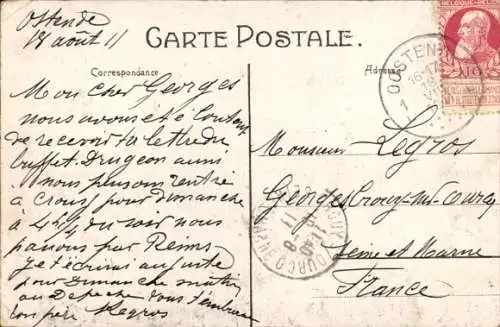 Ostende
18 août 11
CARTE POSTALE.
Correspondance
Adresse
Mon cher Georges
nous avons été content
de recevoir ta lettre du
buffet. Drugeon aussi
nous pensons rentré
à Crouy pour dimanche
à 4 h ½ du soir nous
passons par Reims
je t'écrirai au juste
pour Dimanche matin
ou Depeche tous t'embrasse
ton père Legros
Monsieur Legros
Georges Crouy-sur-Ourcq
Seine et Marne
France
OSTEN
16-17
1911
10